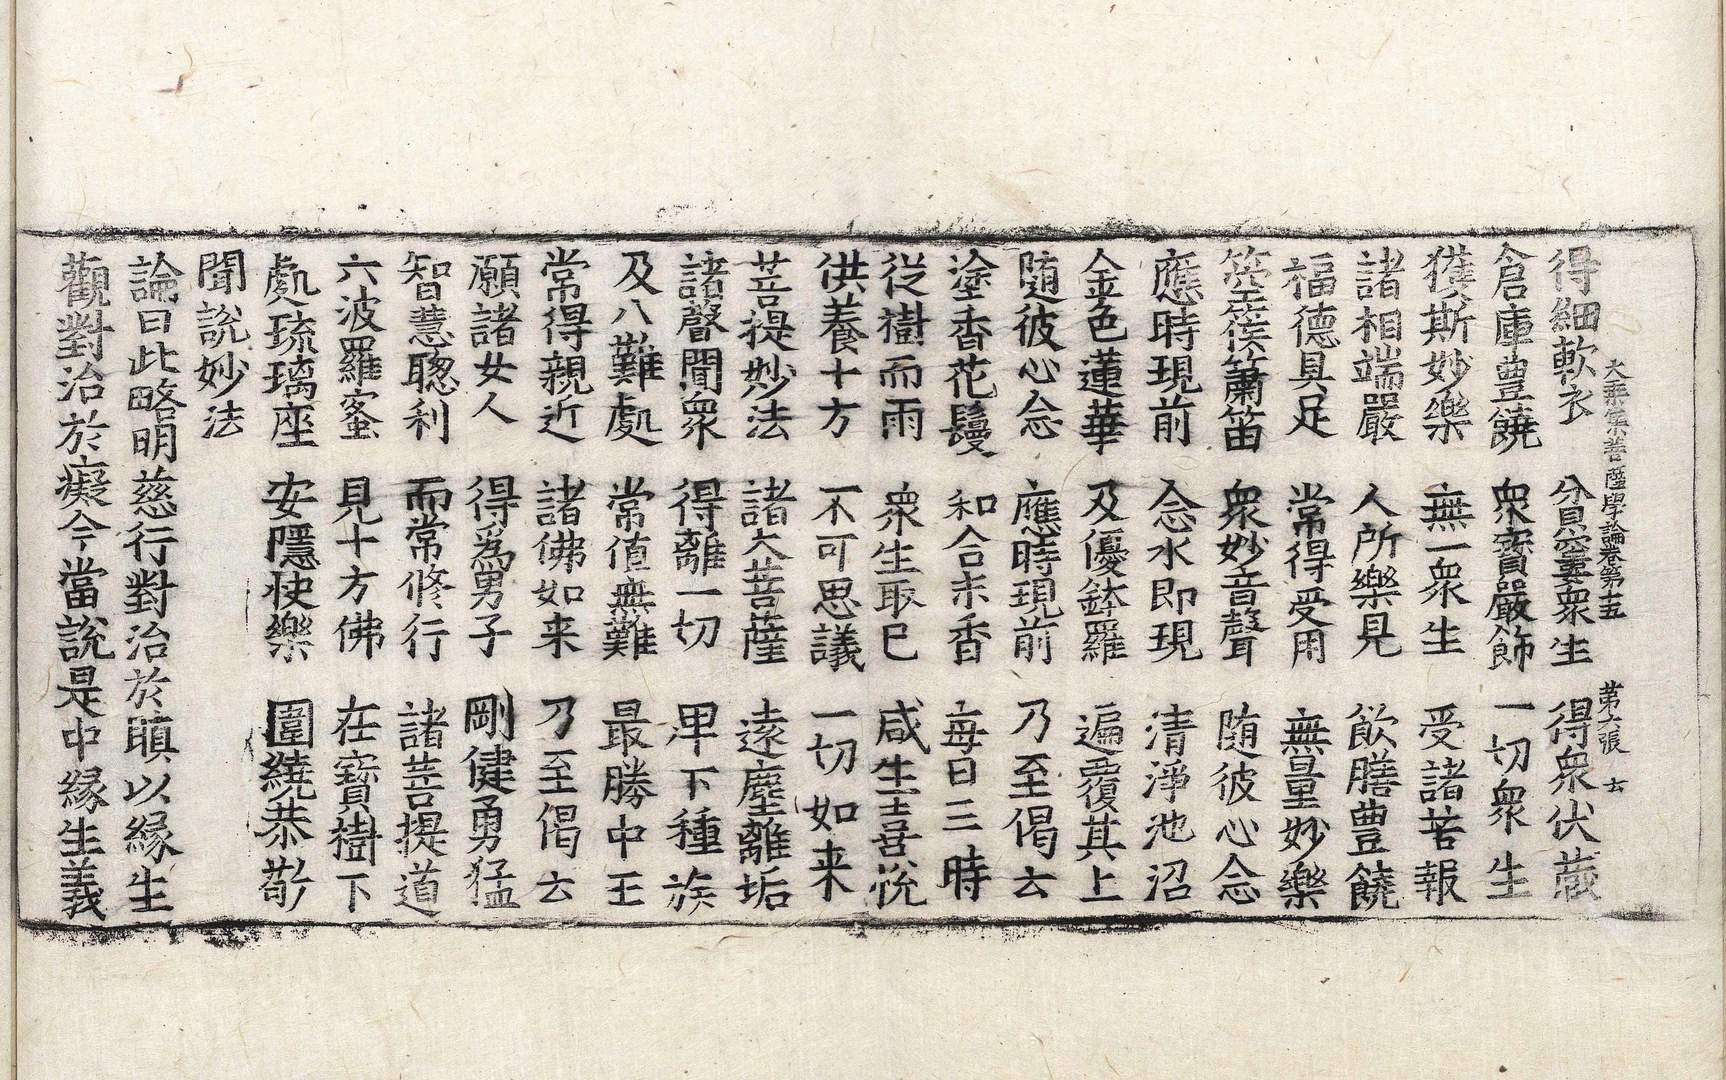 大乗集菩薩學論卷第十五　第六張　去
得細軟衣　貧窶衆生　得衆伏蔵
倉庫豊饒　衆寳嚴飾　一切衆生
獲斯妙樂　無一衆生　受諸苦報
諸相端嚴　人所樂見　飲膳豊饒
福德具足　常得受用　無量妙樂
箜篌簫笛　衆妙音聲　随彼心念
應時現前　念水即現　清淨池沼
金色蓮華　及優鉢羅　遍覆其上
随彼心念　應時現前　乃至偈云
塗香花鬘　和合末香　每日三時
従樹而雨　衆生取已　咸生喜悅
供養十方　不可思議　一切如来
菩提妙法　諸大菩薩　遠塵離垢
諸聲聞衆　得離一切　卑下種族
及八難處　常值無難　最勝中王
常得親近　諸佛如来　乃至偈云
願諸女人　得為男子　剛健勇猛
智慧聡利　而常修行　諸菩提道
六波羅蜜　見十方佛　在寳樹下
處琉璃座　安隱快樂　圍繞恭敬
聞說妙法
論曰此略明慈行對治於瞋以緣生
觀對治於癡今當說是中緣生義